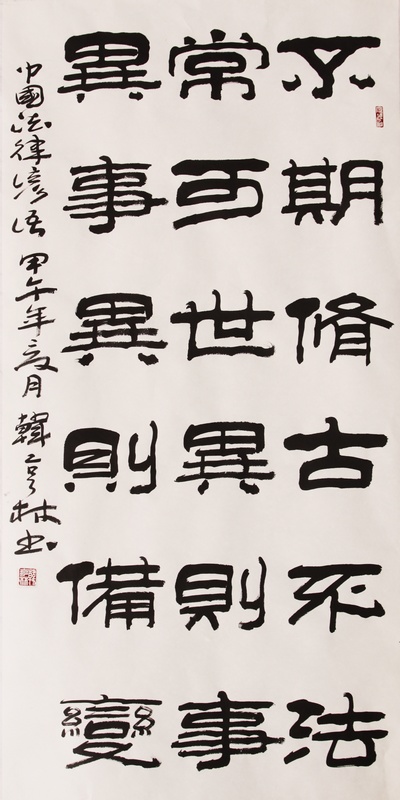 不期脩古不法
常可世異則事
異事異則備變
中國法律諺語 甲午年夏月 韓亨林書